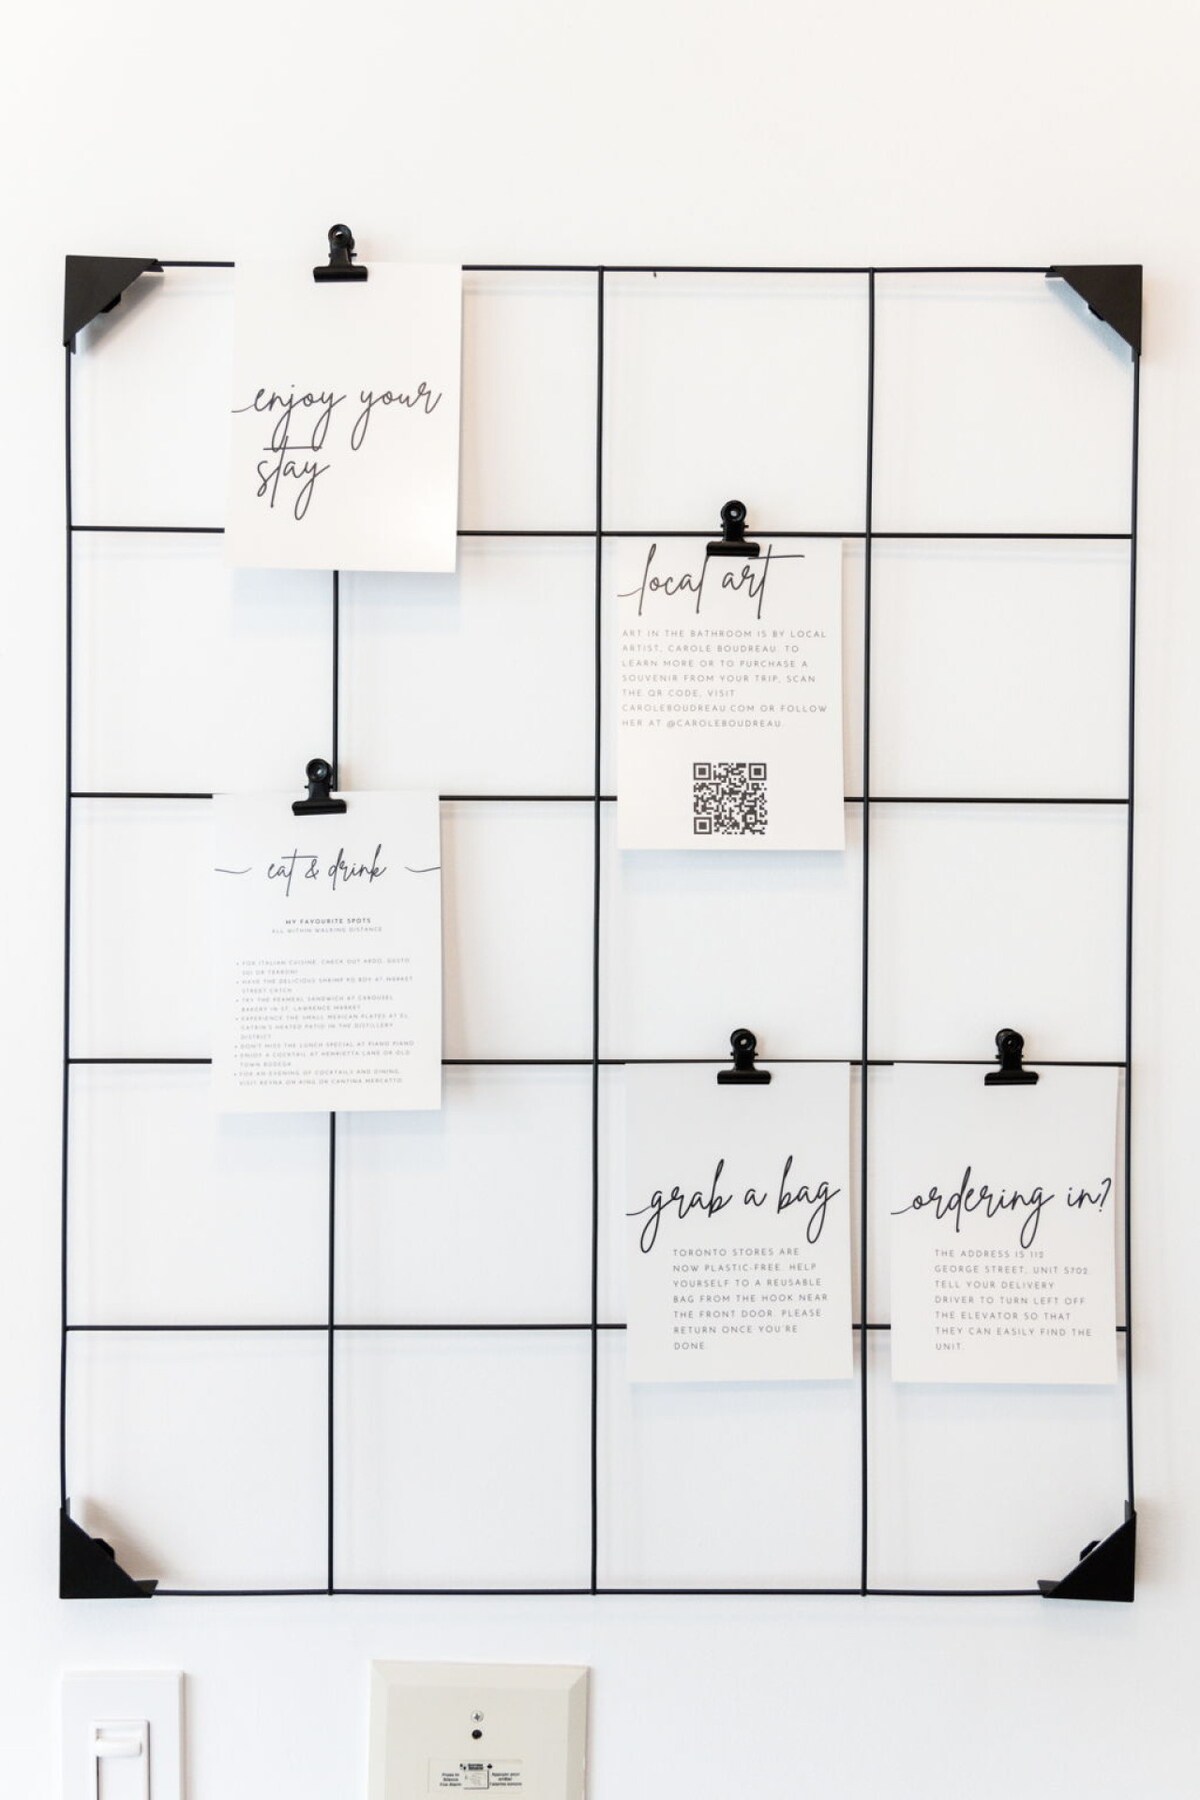 enjoy your
stay
local art
ART IN THE BATHROOM IS BY LOCAL
ARTIST, CAROLE BOUDREAU. TO
LEARN MORE OR TO PURCHASE A
SOUVENIR FROM YOUR TRIP, SCAN
THE QR CODE, VISIT
CAROLEBOUDREAU.COM OR FOLLOW
HER AT @CAROLEBOUDREAU.
eat & drink
MY FAVOURITE SPOTS
ALL WITHIN WALKING DISTANCE
• FOR ITALIAN CUISINE, CHECK OUT ARDO, GUSTO
501 OR TERRONI
• HAVE THE DELICIOUS SHRIMP PO BOY AT MARKET
STREET CATCH
• TRY THE PEAMEAL SANDWICH AT CAROUSEL
BAKERY IN ST. LAWRENCE MARKET
• EXPERIENCE THE SMALL MEXICAN PLATES AT EL
CATRIN'S HEATED PATIO IN THE DISTILLERY
DISTRICT
• DON'T MISS THE LUNCH SPECIAL AT PIANO PIANO
• ENJOY A COCKTAIL AT HENRIETTA LANE OR OLD
TOWN BODEGA
• FOR AN EVENING OF COCKTAILS AND DINING,
VISIT REYNA ON KING OR CANTINA MERCATTO
grab a bag
TORONTO STORES ARE
NOW PLASTIC-FREE. HELP
YOURSELF TO A REUSABLE
BAG FROM THE HOOK NEAR
THE FRONT DOOR. PLEASE
RETURN ONCE YOU'RE
DONE.
ordering in?
THE ADDRESS IS 112
GEORGE STREET, UNIT S702.
TELL YOUR DELIVERY
DRIVER TO TURN LEFT OFF
THE ELEVATOR SO THAT
THEY CAN EASILY FIND THE
UNIT.
Press to
Silence
Fire Alarm